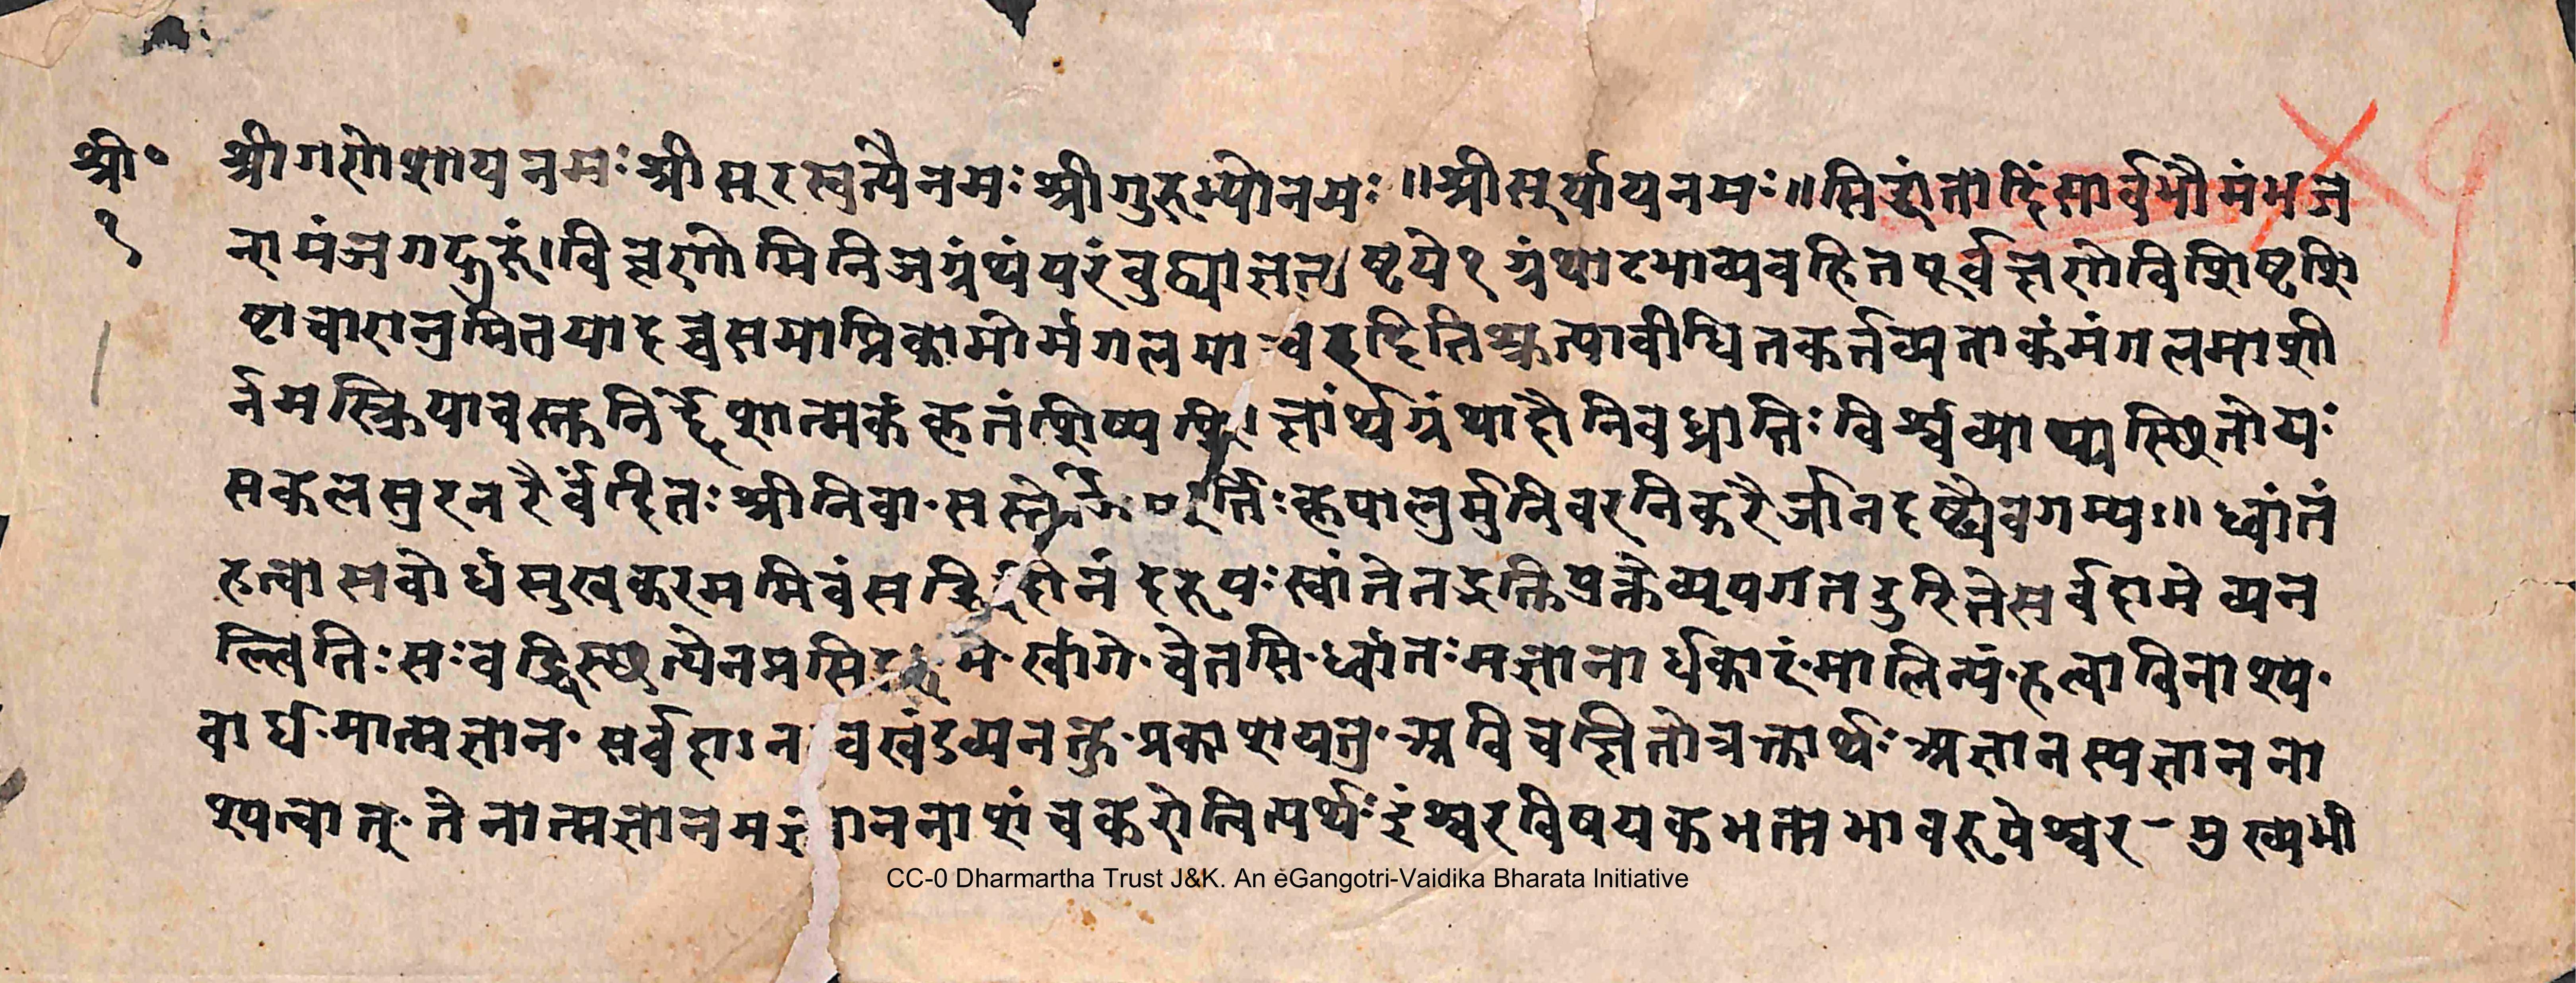 श्री॰ श्रीगणेशायनमः श्रीसूरस्वत्यैनमः श्रीगुरुभ्योनमः ॥ श्रीसूर्यायनमः ॥ सिद्धांतादिंसार्वभौमंभजे
१ नामंजगद्गुरुं। विवृणोमिनिजग्रंथंपरंबुद्ध्याज्ञतुष्टये१ ग्रंथारभाव्यवहितपूर्वक्षणेविशिष्टशि
ष्टाचारानुमितयादृच्चसमाप्तिकामोर्मगलमाचरेदितिश्रुत्यावोधितकर्तव्यताकंमंगलमाशी
र्नमस्क्रियावस्तुनिर्द्देशात्मकंकृतंशिष्यशिक्षार्थग्रंथादौनिबध्नातिः विश्वव्याप्यास्थितोयः
सकलसुरनरैर्वंदितः श्रीनिवा॰स मूर्त्तिः कृपालुर्मुनिवरनिकरैर्ज्ञानदृष्ट्यैवगम्यः॥ ध्वांतं
हत्वासवोधंसुखकरममिवं हृत्पः स्वांतेतद्भक्तियुक्तेव्यपगतदुरितेसर्वदामेव्यन
त्वितिः सः वह्निस्थत्येनप्रसिद्ध मे॰ स्वांगे॰ चेतसि॰ ध्वांतः मज्ञानांधकारं॰ मालिन्यं॰ हत्वाविनाश्य॰
वोधं॰ मात्मज्ञानं॰ सर्वदाऽनवखंडंव्यनक्तु॰ प्रकाशयतु॰ अविवक्षितोत्रक्तार्थः अज्ञानस्यज्ञाननो
श्यत्वात्॰ तेनात्मज्ञानम ाननाशंचकरोत्वित्यर्थः ईश्वरविषयकभक्तिभावरूपेश्वर- मुख्यभी
CC-0 Dharmartha Trust J&K. An eGangotri-Vaidika Bharata Initiative